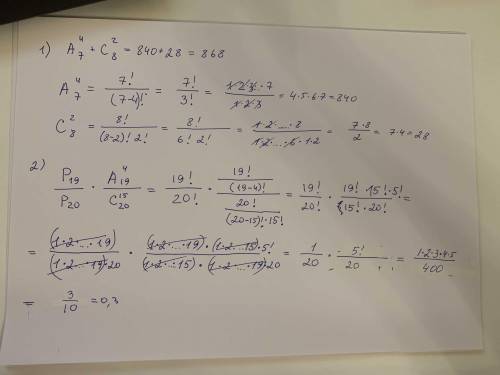 1) A₇⁴ + C₈² = 840+28 = 868
A₇⁴ = 7!/(7-4)! = 7!/3! = 1·2·3·…·7/1·2·3 = 4·5·6·7=840
C₈² = 8!/(8-2)! 2! = 8!/6! 2! = 1·2·…·8/1·2·…·6·1·2 = 7·8/2 = 7·4=28
2) P₁₉/P₂₀ · A₁₉⁴/C₂₀¹⁵ = 19!/20! · (19!/(19-4)!)/(20!/(20-15)!·15!) = 19!/20! · 19! 15!·5!/15!·20! =
= (1·2·…·19)/(1·2·…·19)·20 · (1·2·…·19)·(1·2·…15)·5!/(1·2·…·15)·(1·2·…·19)20 = 1/20 · 5!/20 = 1·2·3·4·5/400
= 3/10 =0,3